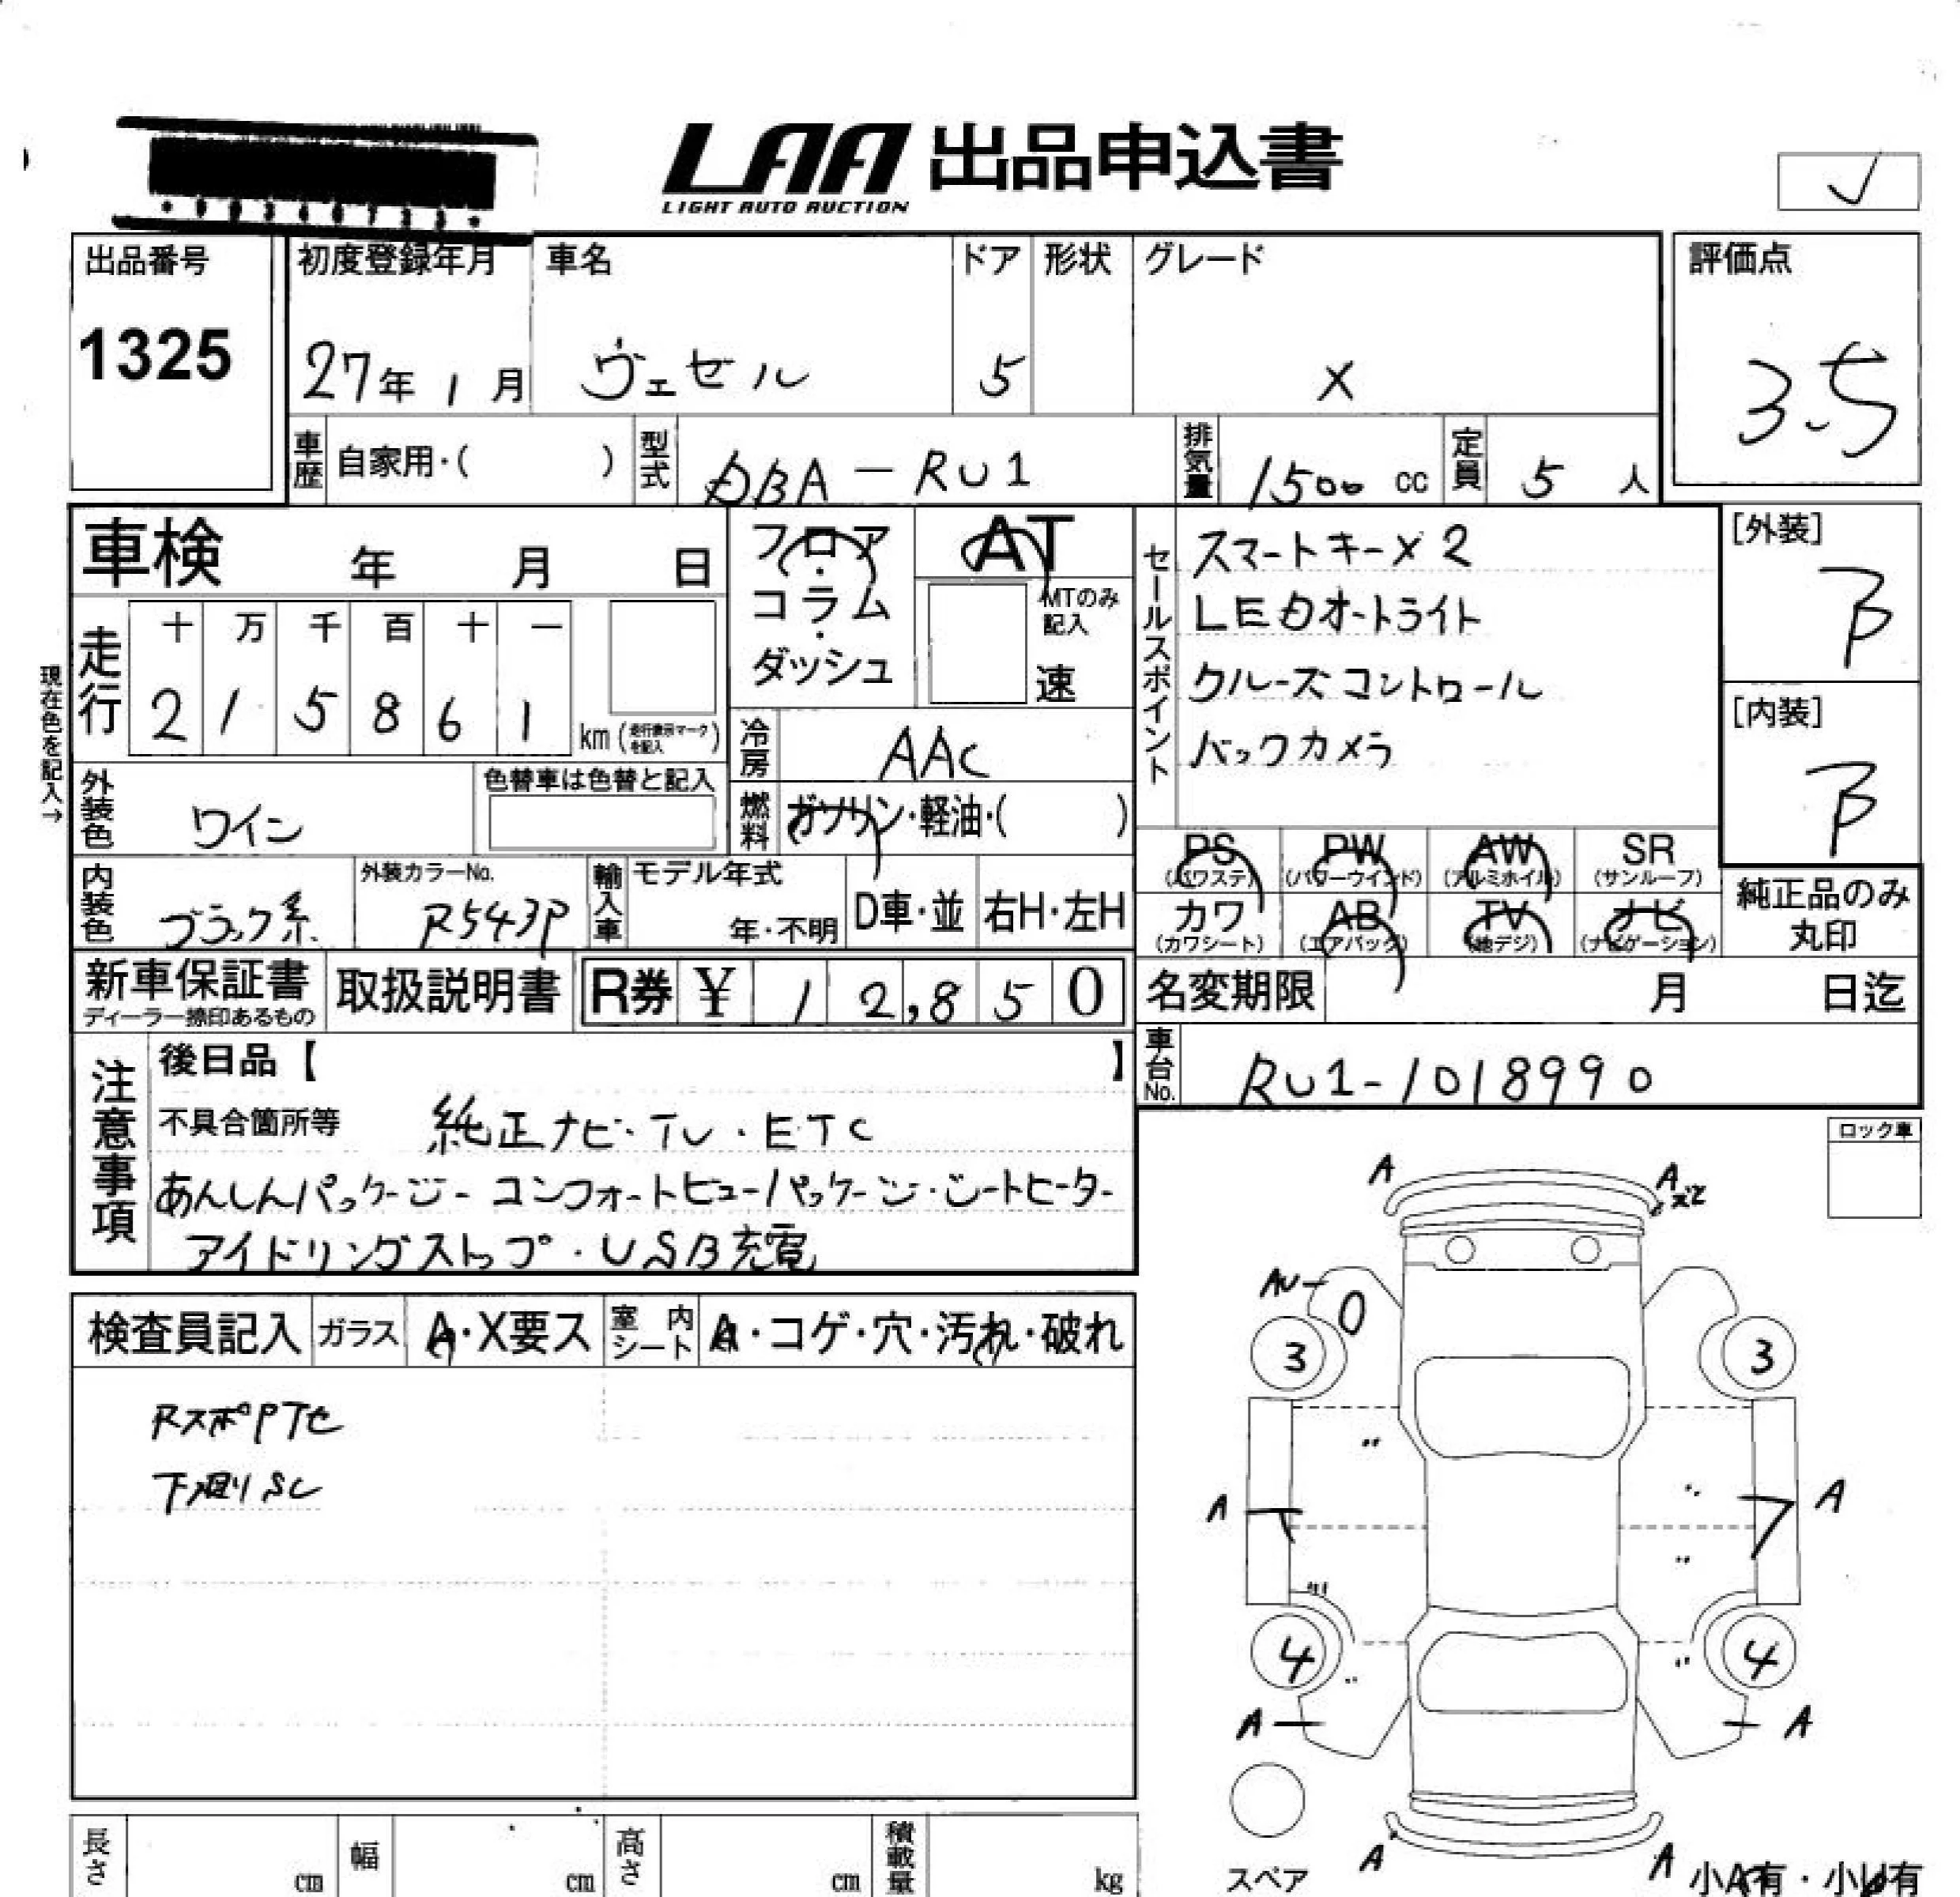 LAA 出品申込書
LIGHT AUTO AUCTION
出品番号
1325
初度登録年月
27年 1月
車名
ヴェゼル
ドア
5
形状
グレード
X
評価点
3.5
車歴
自家用・( )
型式
DBA-RU1
排気量
1500 cc
定員
5 人
車検 年 月 日
現在色を記入→
走行
十 万 千 百 十 一
2 1 5 8 6 1
km (走行表示マークを記入)
フロア・コラム・ダッシュ
AT
MTのみ記入
速
冷房
AAC
燃料
ガソリン・軽油・( )
セールスポイント
スマートキー×2
LEDオートライト
クルーズコントロール
バックカメラ
[外装]
B
[内装]
B
外装色
ワイン
色替車は色替と記入
内装色
ブラック系
外装カラーNo.
R543P
輸入車
モデル年式
年・不明
D車・並
右H・左H
PS
(パワステ)
PW
(パワーウインド)
AW
(アルミホイル)
SR
(サンルーフ)
カワ
(カワシート)
AB
(エアバッグ)
TV
(地デジ)
ナビ
(ナビゲーション)
純正品のみ丸印
新車保証書
ディーラー捺印あるもの
取扱説明書
R券 ¥ 12,850
名変期限 月 日迄
車台No.
RU1-1018990
注意事項
後日品【 】
不具合箇所等
純正ナビ・TV・ETC
あんしんパッケージ・コンフォートビューパッケージ・シートヒーター
アイドリングストップ・USB充電
ロック車
検査員記入
ガラス
A・X要ス
室内シート
A・コゲ・穴・汚れ・破れ
RスポPTセ
下廻りSC
A
A
ズレ
AU
0
3
3
A
A
4
4
A
A
スペア
A
A
小A有・小U有
長さ cm
幅 cm
高さ cm
積載量 kg